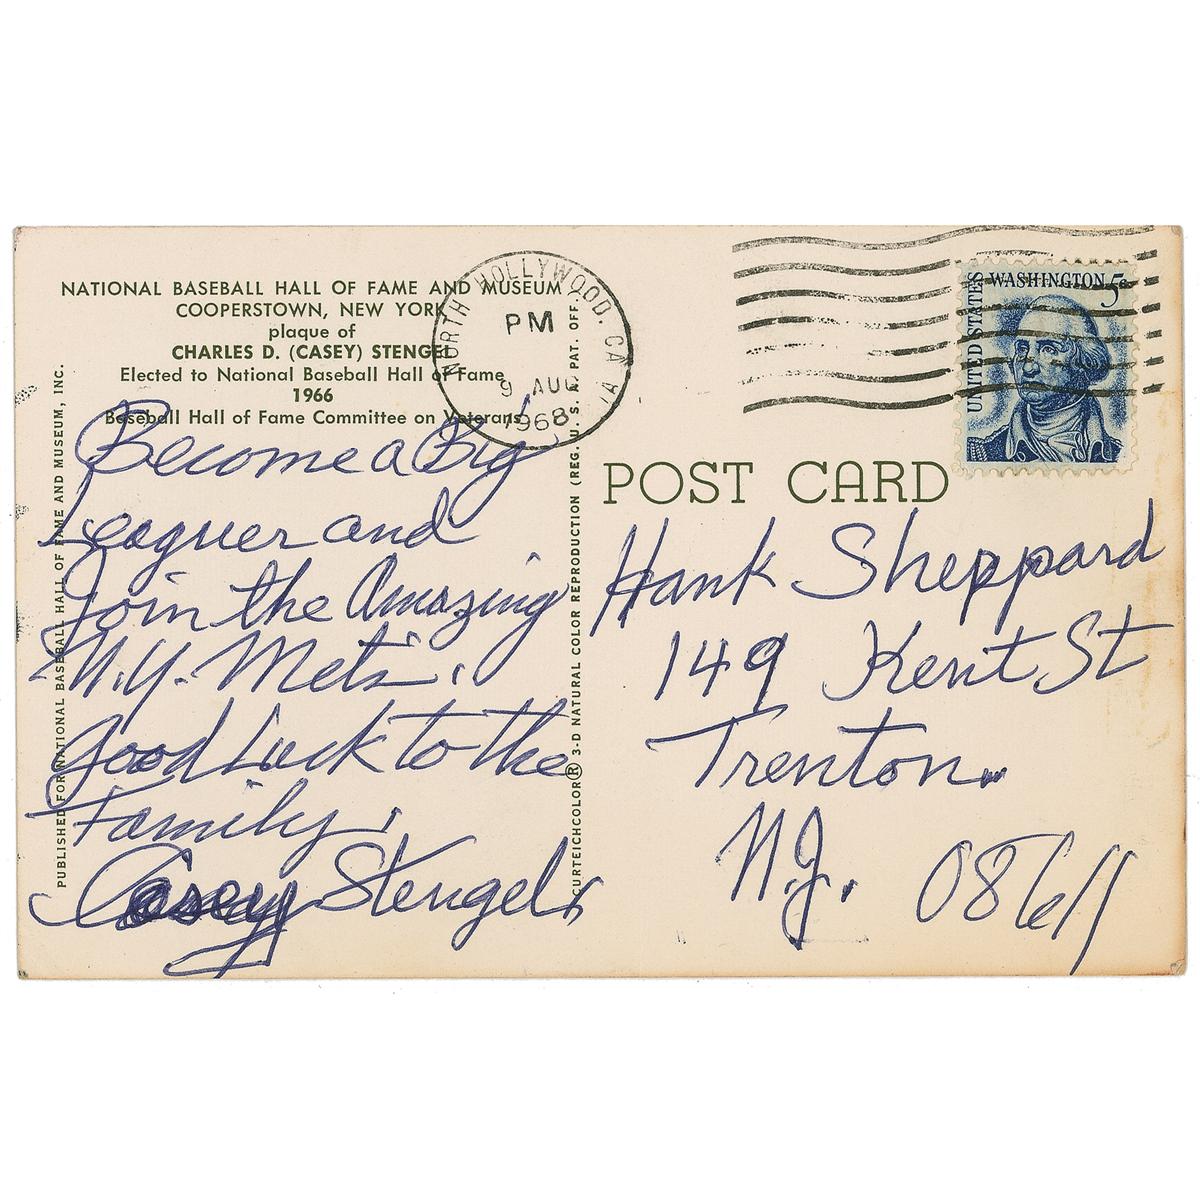 NATIONAL BASEBALL HALL OF FAME AND MUSEUM
COOPERSTOWN, NEW YORK
plaque of
CHARLES D. (CASEY) STENGEL
Elected to National Baseball Hall of Fame
1966
Baseball Hall of Fame Committee on Veterans
Become a Big
Leaguer and
Join the Amazing
N.Y. Mets.
Good Luck to the
Family,
Casey Stengel,
PUBLISHED FOR NATIONAL BASEBALL HALL OF FAME AND MUSEUM, INC.
CURTEICHCOLOR® 3-D NATURAL COLOR REPRODUCTION (REG. U. S. A. PAT. OFF.)
NORTH HOLLYWOOD, CA
PM
9 AUG
1968
UNITED STATES
WASHINGTON 5c
POST CARD
Hank Sheppard
149 Kent St
Trenton
N.J. 08611